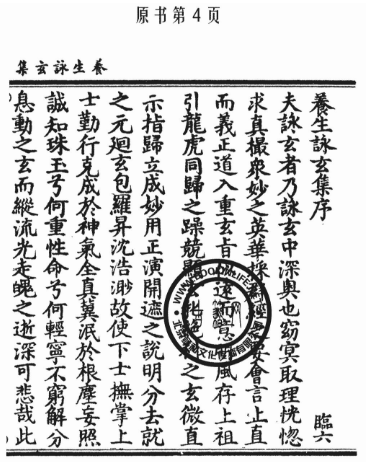 原书第4页
養生詠玄集
養生詠玄集序 臨六
夫詠玄者乃詠玄中深奧也窈冥取理恍惚
求真撮衆妙之英華採 經 妄會言上直
而義正道入重玄旨 遠 意 風存上祖
引龍虎同歸之躁競 之玄微直
示指歸立成妙用正演開遮之說明分去就
之元迴玄包羅昇沈浩渺故使下士撫掌上
士勤行克成於神氣全真冀泯於根塵妄照
誠知珠玉兮何重性命兮何輕寧不窮解分
息動之玄而縱流光走魄之逝深可悲哉此
WWW. LIFE